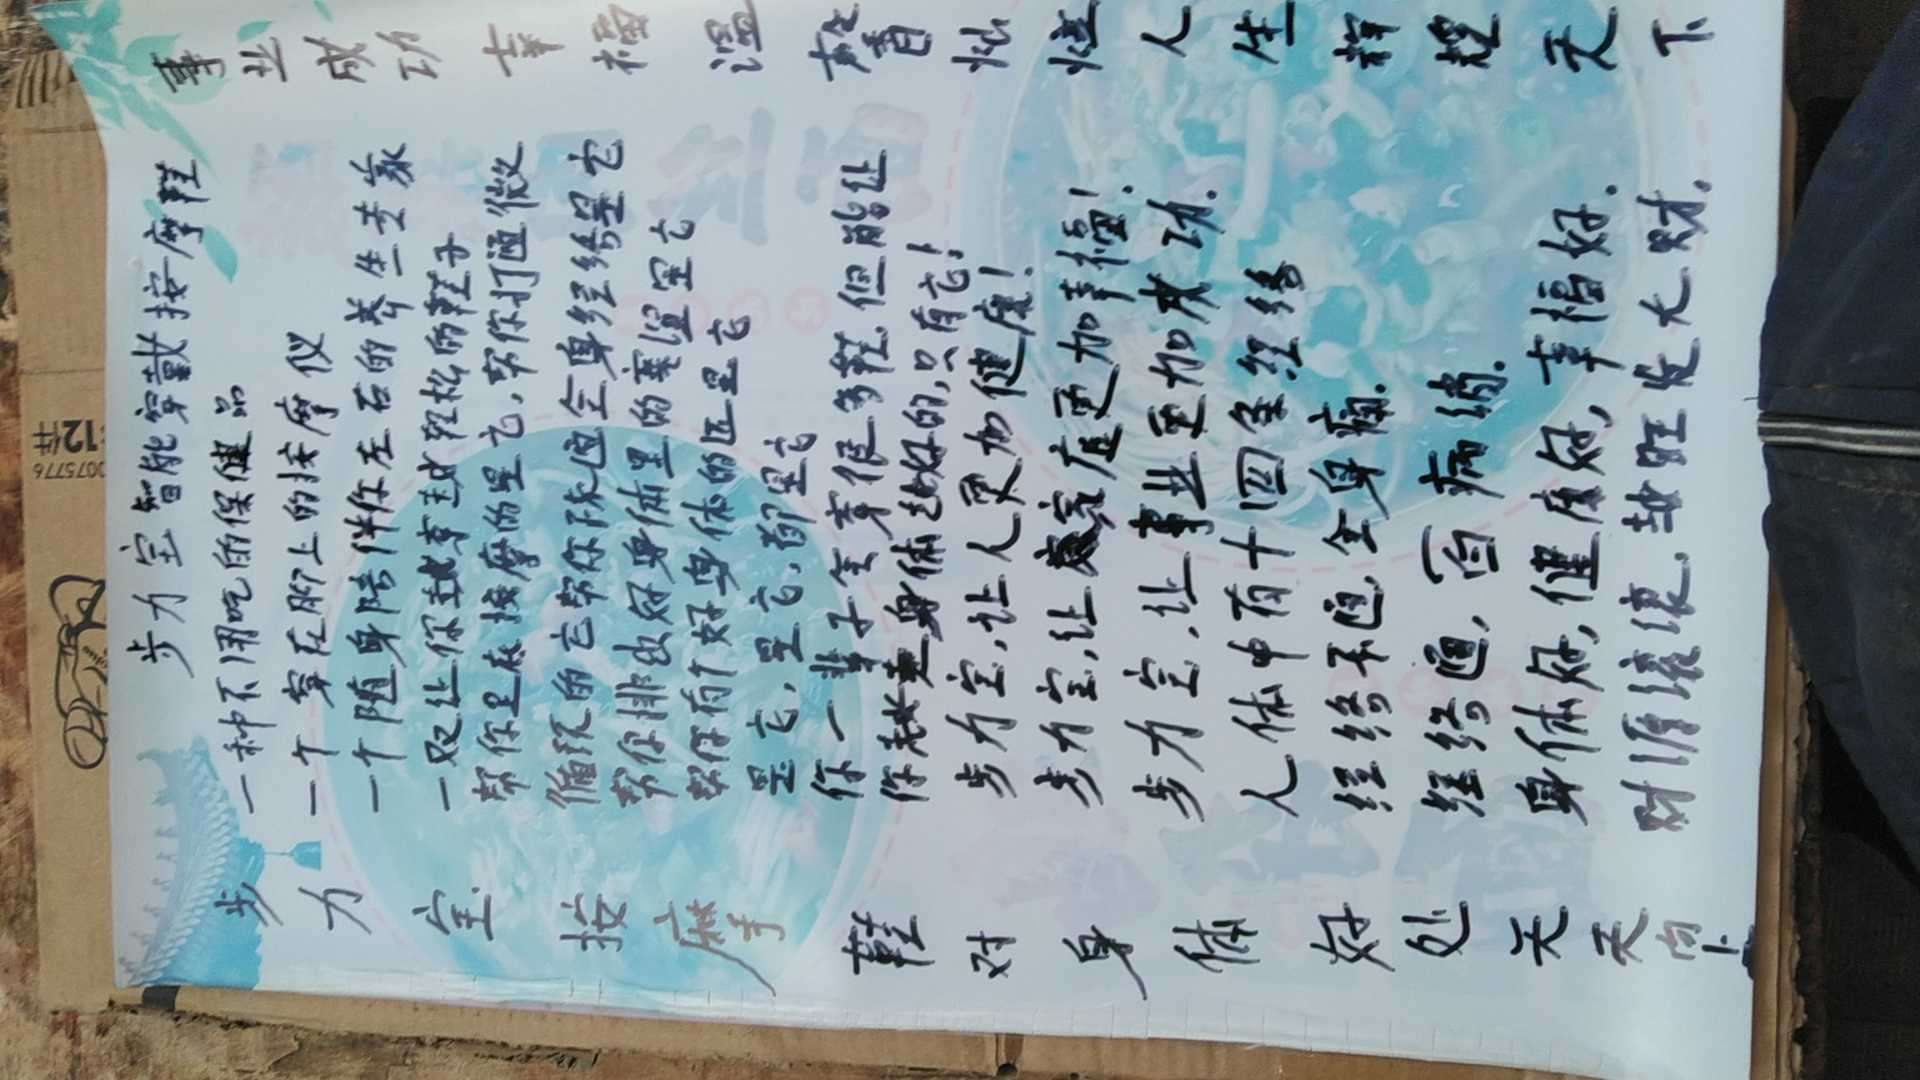 步力宝智能穿戴按摩鞋
一种不用吃的保健品
一个穿在脚上的按摩仪
一个随身陪伴你左右的养生专家
一双让你越穿越轻松的鞋子
帮你足底按摩的是它,帮你打通微
循环的它帮你疏通全身经络是它
帮你排出好身体里的寒湿是它
帮你有个好身体的还是它
是它,是它,都是它
你一辈子会穿很多鞋,但能让
你越走身体越好的,只有它!
步力宝,让人更加健康!
步力宝,让家庭更加幸福!
步力宝,让事业更加成功.
人体中有十四条经络
经络不通,全身痛.
经络通,百病消.
身体好,健康好,幸福好.
财源滚滚,越旺发大财.
步力宝按摩鞋对身体好处天天向上
事业成功幸福温馨 人生辉煌天下
12件
0075776